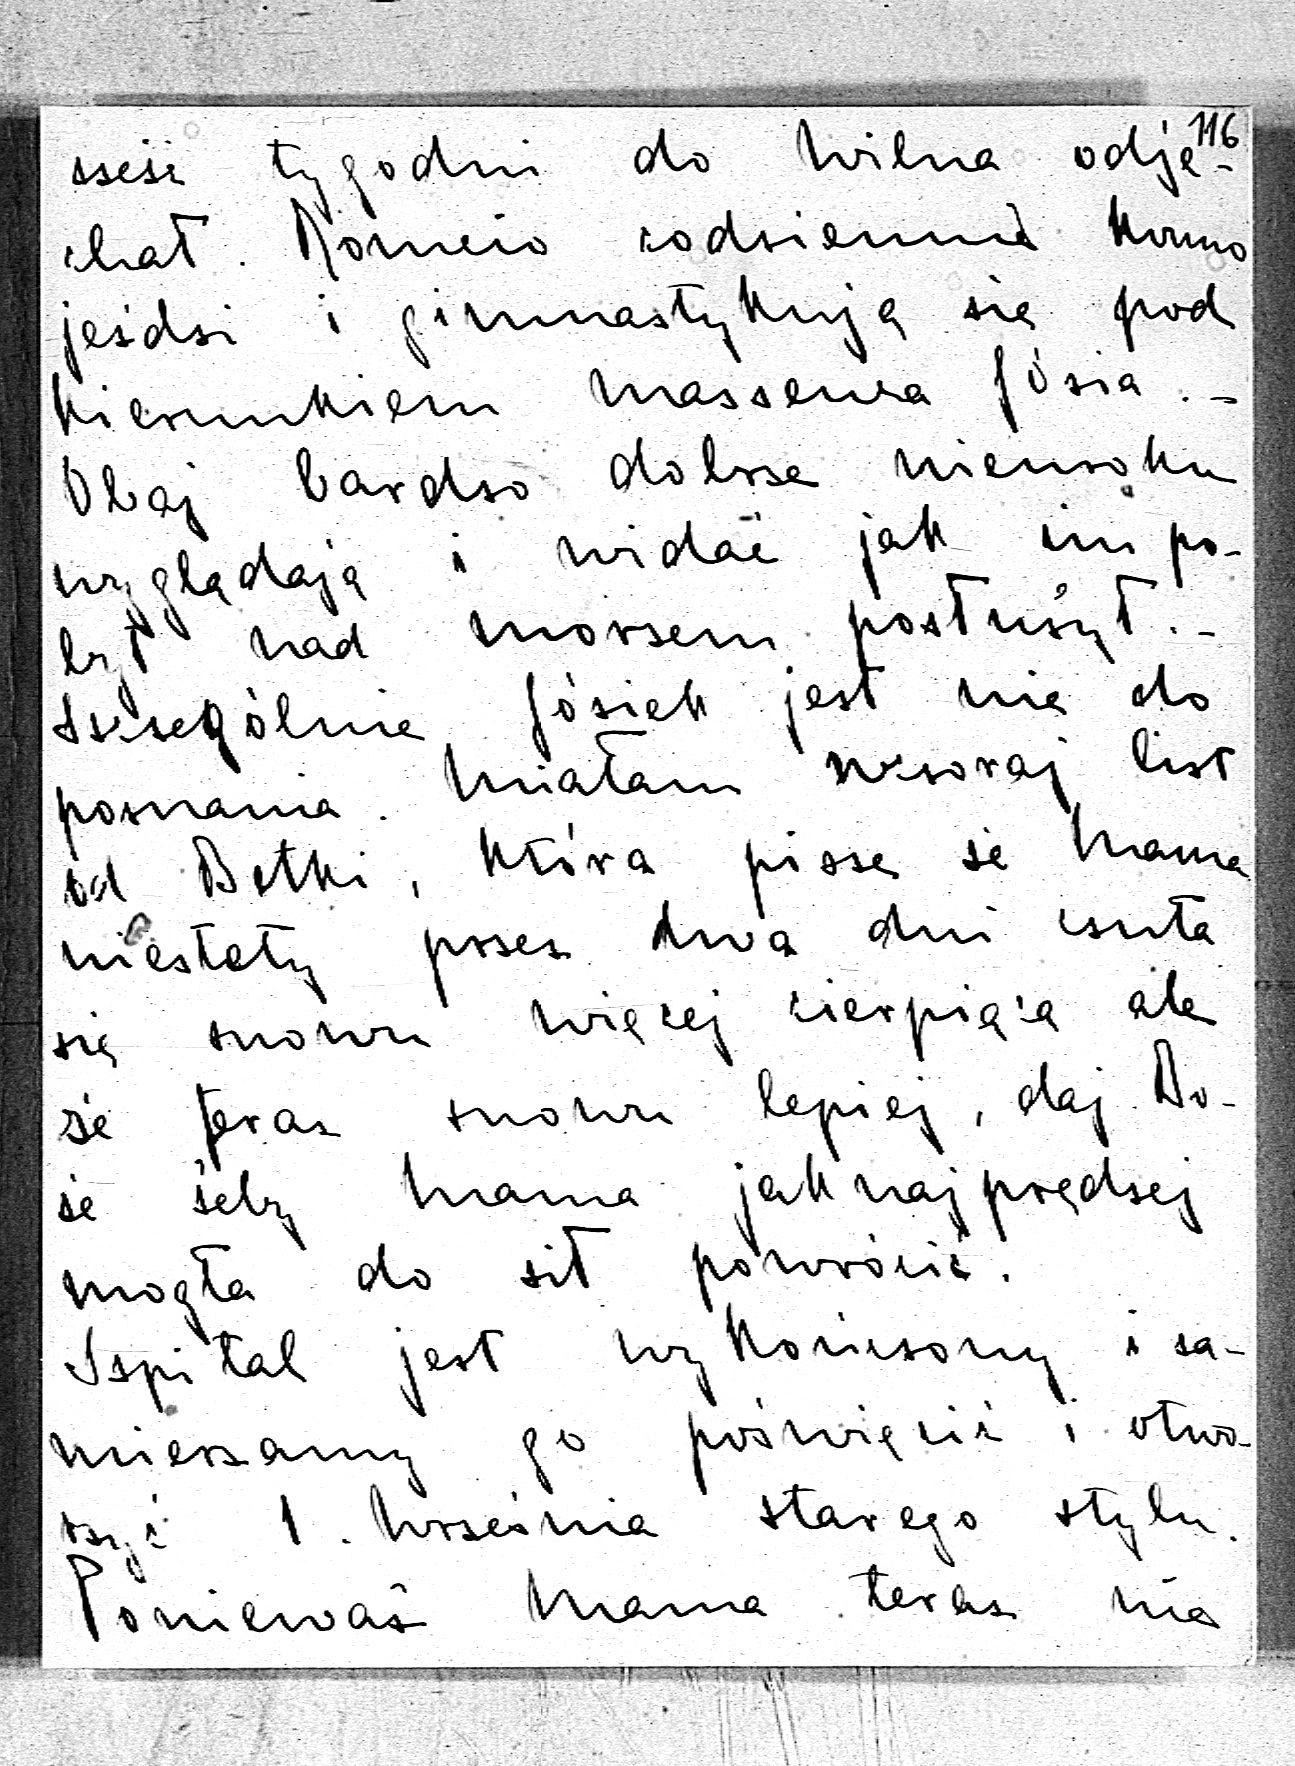 116
sześć tygodni do Wilna odje-
chał. Romcio codziennie konno
jeździ i gimnastykują się pod
kierunkiem masseura Józia. -
Obaj bardzo dobrze nieuroku
wyglądają i widać jak im po-
byt nad morzem posłużył. -
Szczególnie Józiek jest nie do
poznania. Miałam wczoraj list
od Betki, która pisze że Mama
niestety przez dwa dni czuła
się znowu więcej cierpiącą ale
że teraz znowu lepiej, daj Bo-
że żeby Mama jaknajprędzej
mogła do sił powrócić.
Szpital jest wykończony i za-
mierzamy go poświęcić i otwo-
rzyć 1. Września starego stylu.
Ponieważ Mama teraz nie